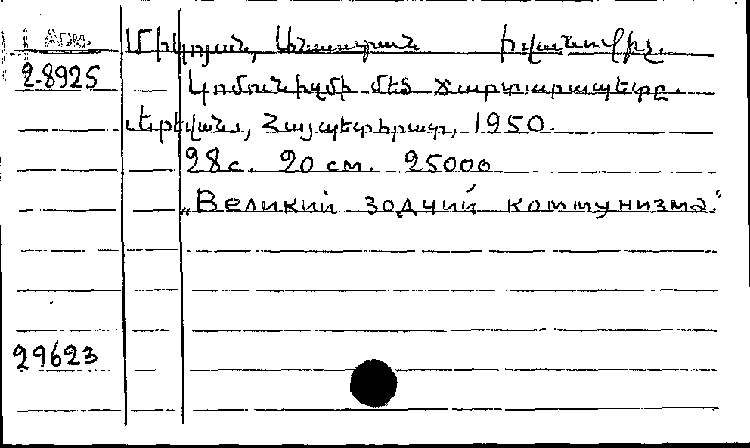 Арм.
2-8925
Միկոյան, Անաստաս Իվանովիչ.
Կոմունիզմի մեծ ճարտարապետը.
Երևան, Հայպետհրատ, 1950.
28 с. 20 см. 25000
„Великий зодчий коммунизма."
29623